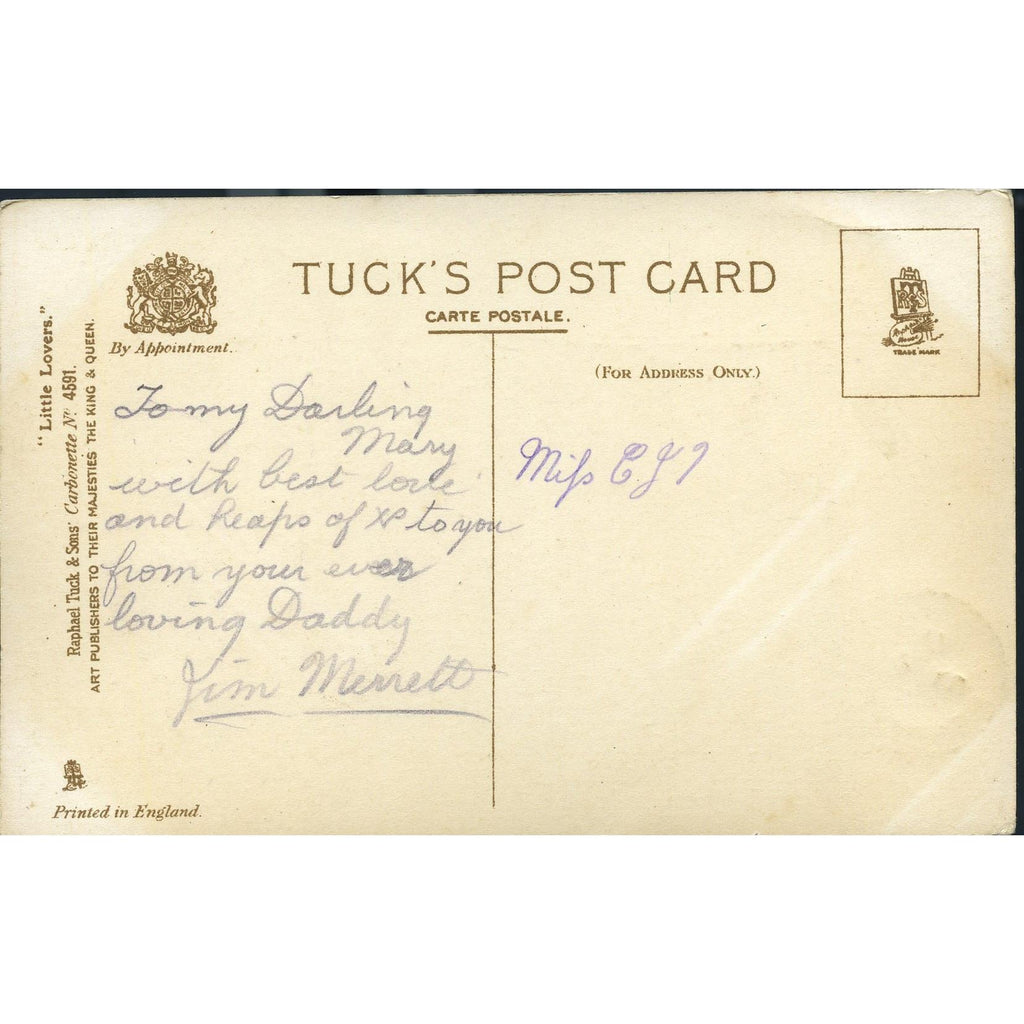 TUCK'S POST CARD
CARTE POSTALE.
By Appointment.
(FOR ADDRESS ONLY.)
TRADE MARK
"Little Lovers."
Raphael Tuck & Sons' Carbonette No 4591.
ART PUBLISHERS TO THEIR MAJESTIES THE KING & QUEEN.
To my Darling
Mary
with best love
and heaps of to you
from your ever
loving Daddy
Jim Merrett
Miss
Printed in England.